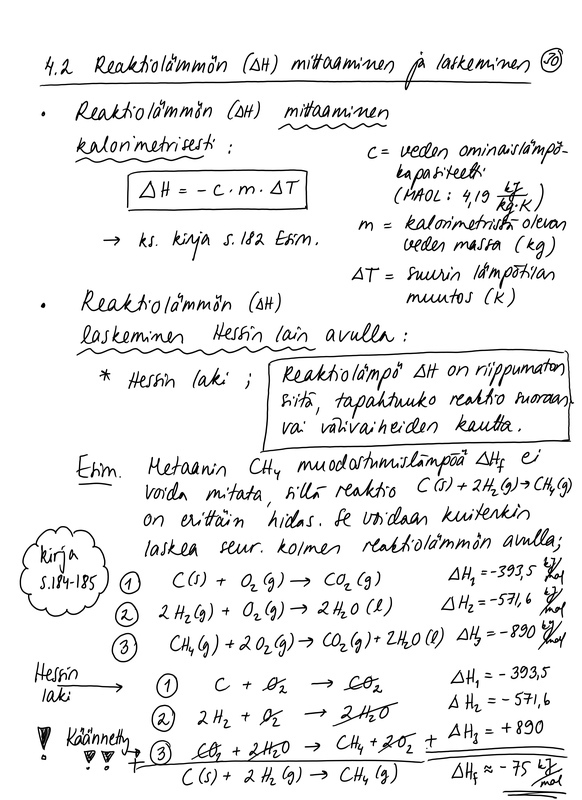 4.2 Reaktiolämmön (ΔH) mittaaminen ja laskeminen 50
• Reaktiolämmön (ΔH) mittaaminen
kalorimetrisesti :
ΔH = -c · m · ΔT
→ ks. kirja s.182 Esim.
c = veden ominaislämpö-
kapasiteetti
(MAOL : 4,19 kJ/kg·K)
m = kalorimetrissä olevan
veden massa (kg)
ΔT = suurin lämpötilan
muutos (K)
• Reaktiolämmön (ΔH)
laskeminen Hessin lain avulla :
* Hessin laki ;
Reaktiolämpö ΔH on riippumaton
siitä, tapahtuuko reaktio suoraan
vai välivaiheiden kautta.
Esim. Metaanin CH₄ muodostumislämpöä ΔHf ei
voida mitata, sillä reaktio C(s) + 2H₂(g) → CH₄(g)
on erittäin hidas. Se voidaan kuitenkin
laskea seur. kolmen reaktiolämmön avulla;
kirja
s.184-185
① C(s) + O₂(g) → CO₂(g) ΔH₁ = -393,5 kJ/mol
② 2H₂(g) + O₂(g) → 2H₂O(l) ΔH₂ = -571,6 kJ/mol
③ CH₄(g) + 2O₂(g) → CO₂(g) + 2H₂O(l) ΔH₃ = -890 kJ/mol
Hessin
laki →
① C + O₂ → CO₂ ΔH₁ = -393,5
② 2H₂ + O₂ → 2H₂O ΔH₂ = -571,6
! Käännetty → ③ CO₂ + 2H₂O → CH₄ + 2O₂ + ΔH₃ = +890
!! + C(s) + 2H₂(g) → CH₄(g) ΔHf ≈ -75 kJ/mol